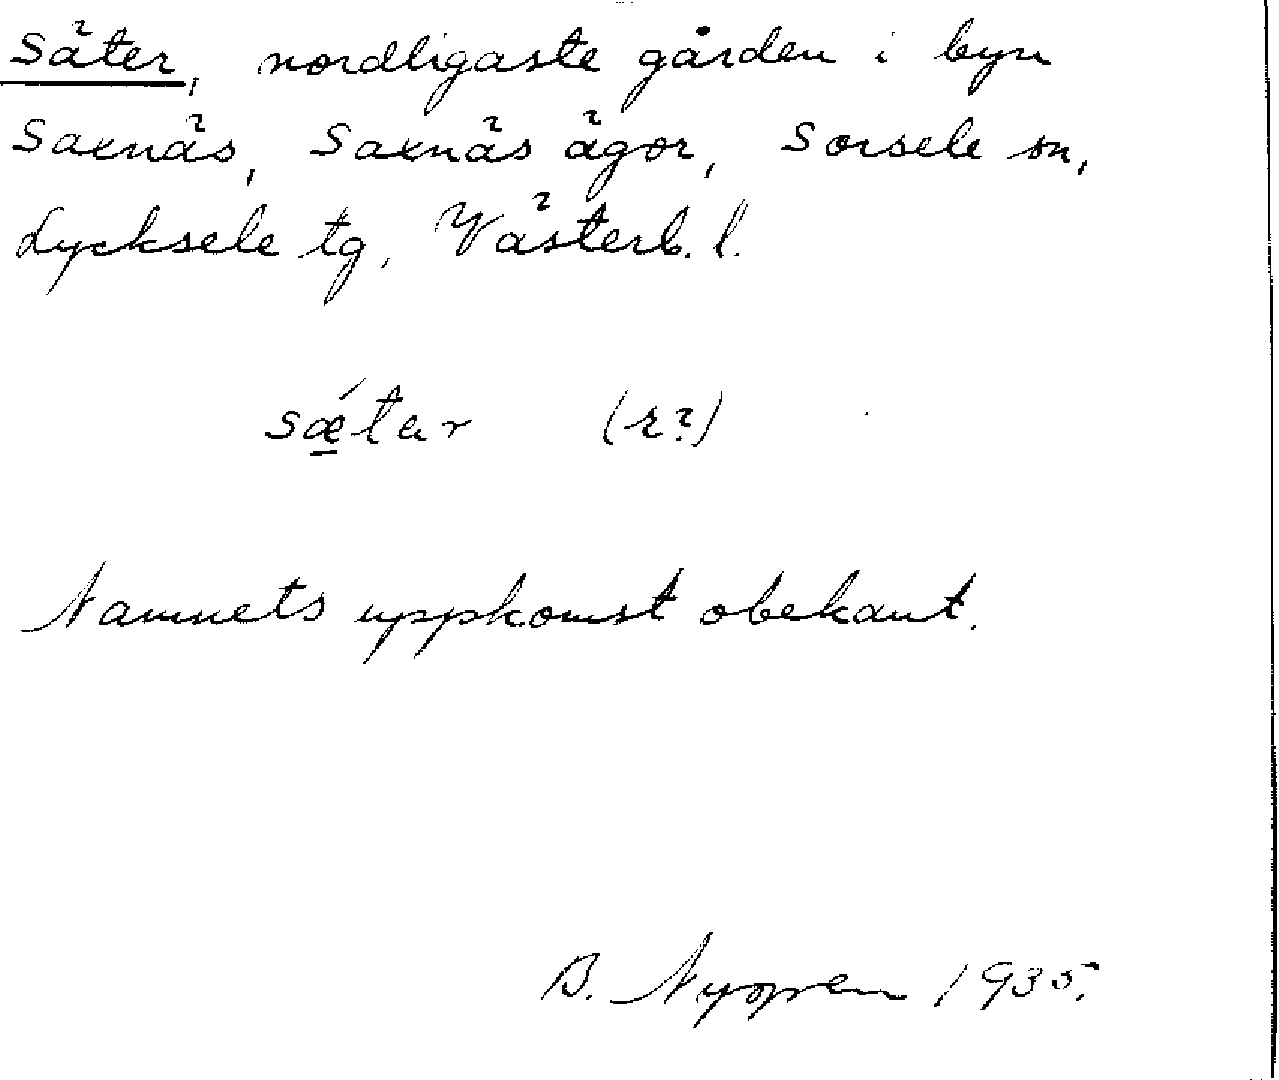 Säter, nordligaste gården i byn
Saxnäs, Saxnäs ägor, Sorsele sn,
Lycksele tg, Västerb. l.
sǽ̠tar (r?)
Namnets uppkomst obekant.
B. 1935.